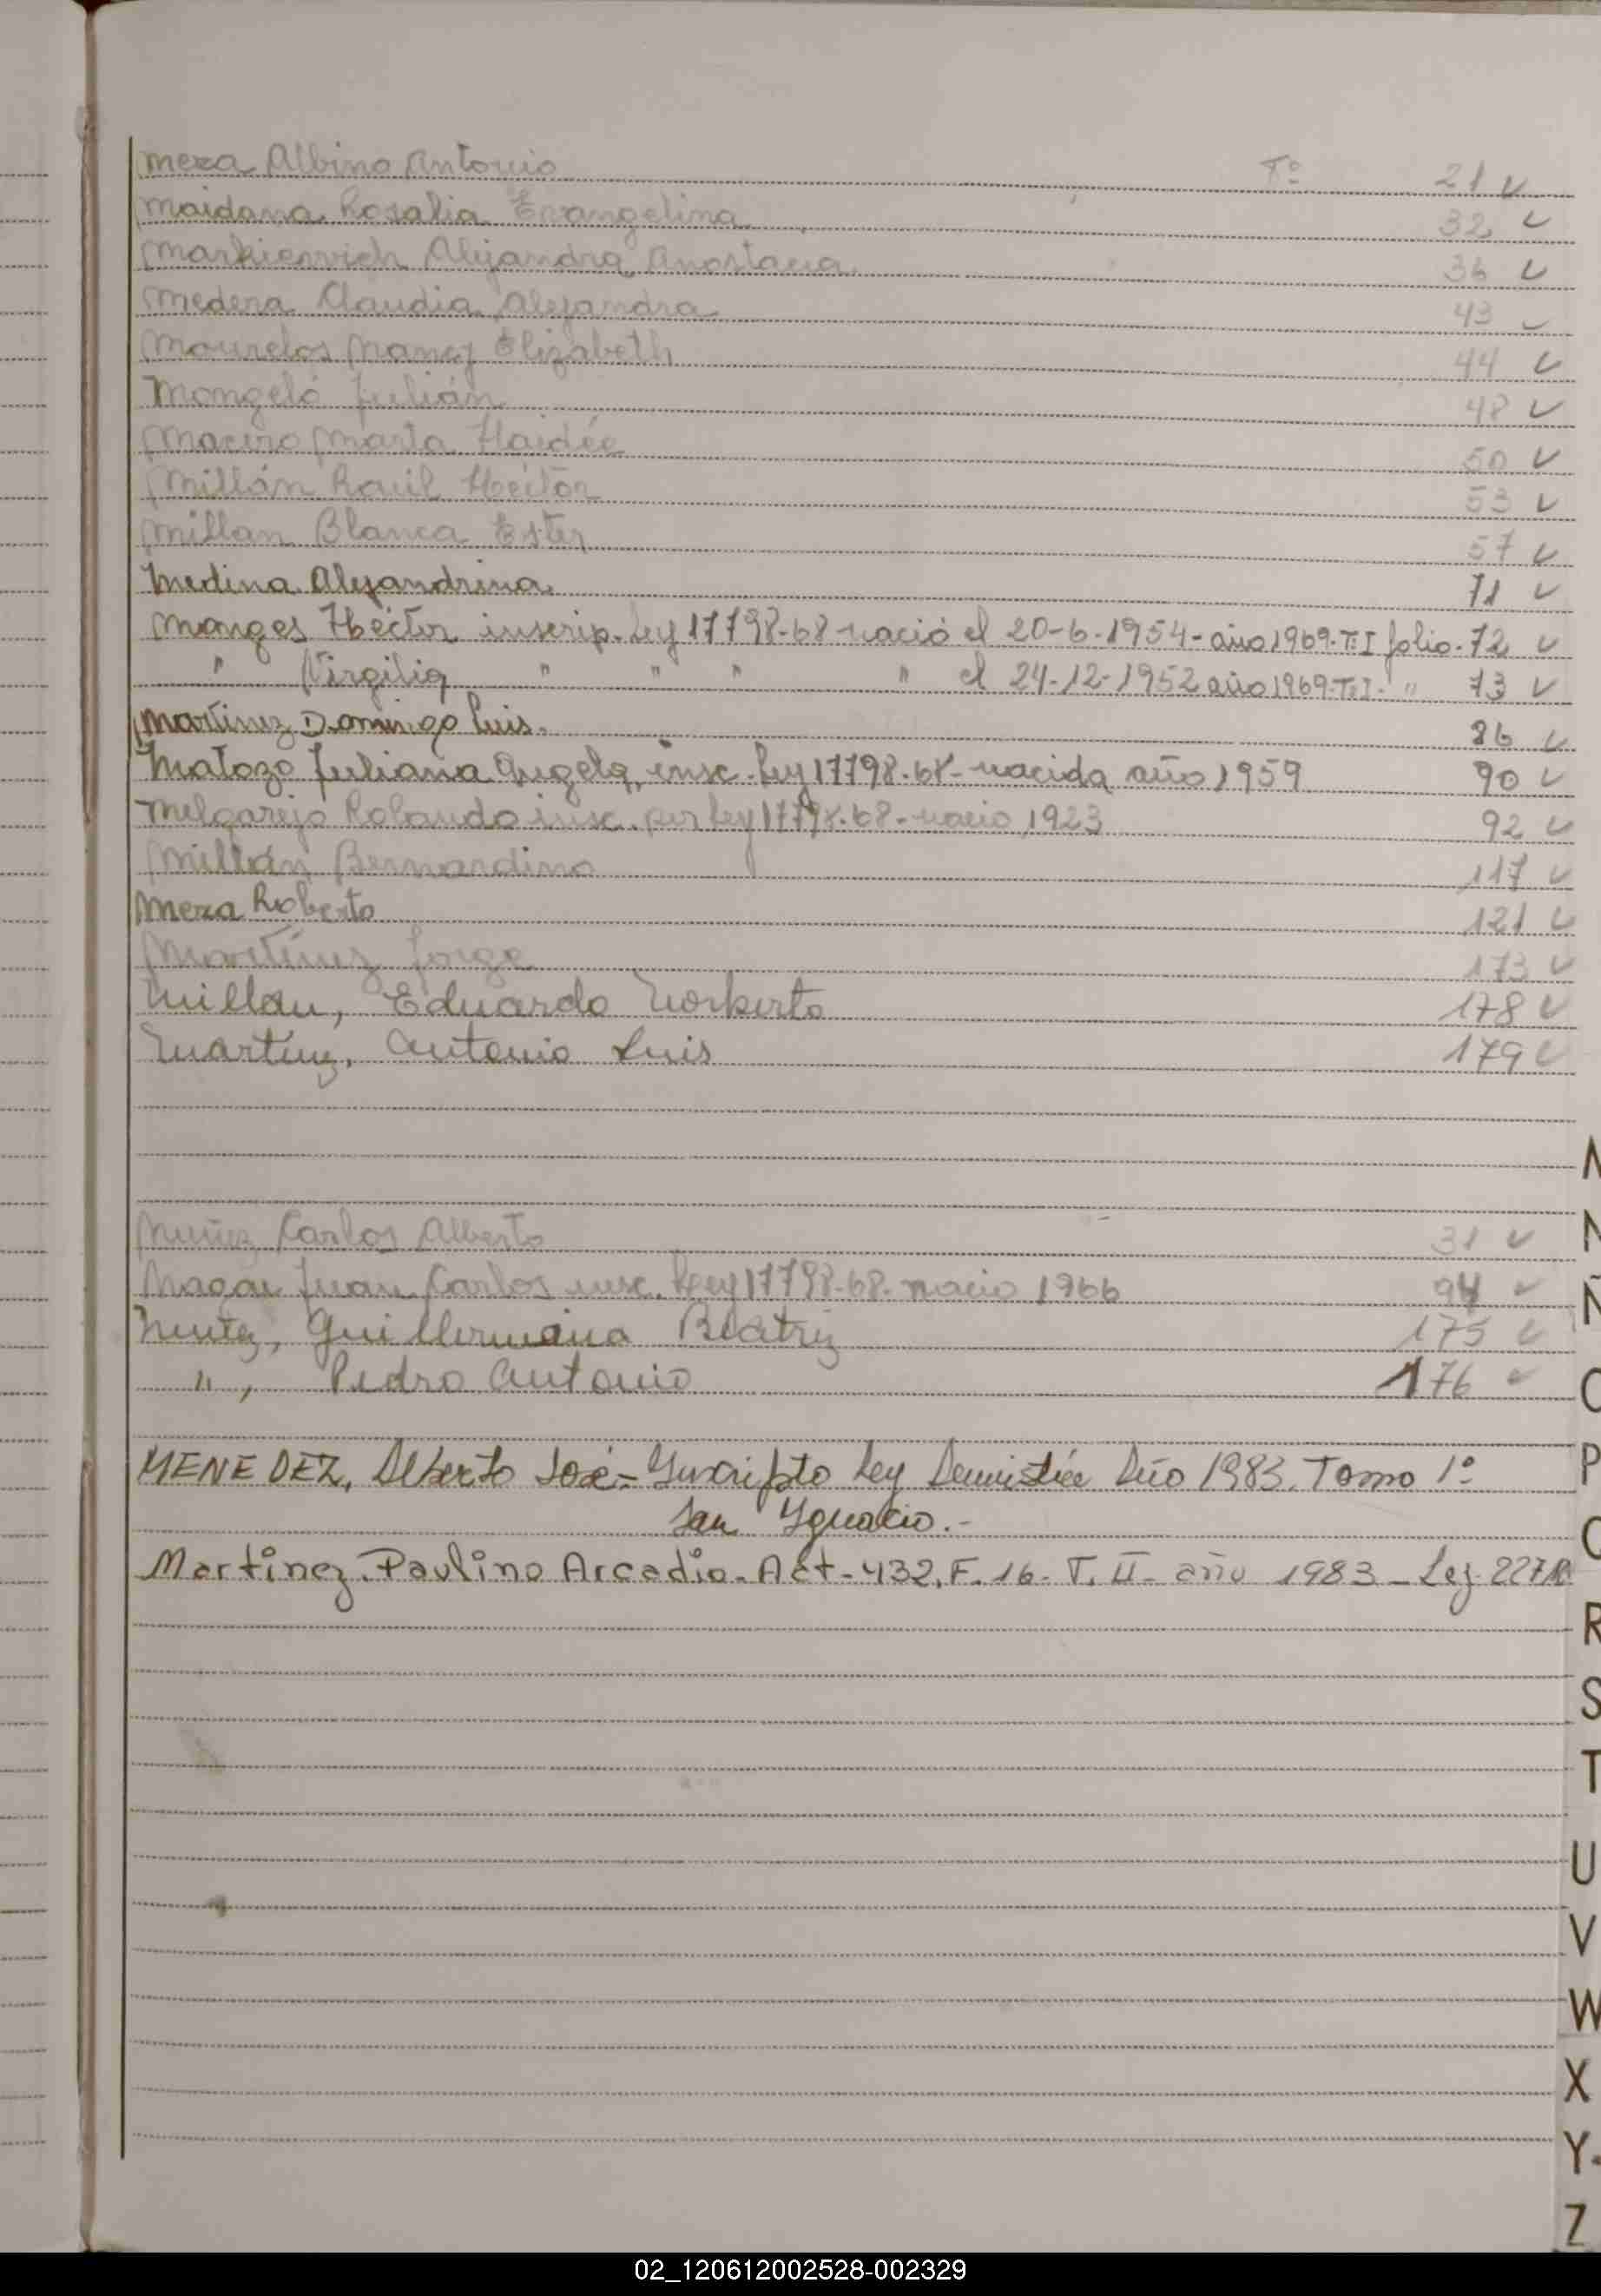 Meza Albino Antonio Tº 21 ✓
Maidana Rosalia Evangelina 32 ✓
Markievich Alejandra Anastacia 36 ✓
Medera Claudia Alejandra 43 ✓
Mourelos Nancy Elizabeth 44 ✓
Mongeló Julián 48 ✓
Maciro Marta Haidée 50 ✓
Millán Raúl Héctor 53 ✓
Millan Blanca Ester 57 ✓
Medina Alejandrina 71 ✓
Monges Héctor inscrip. Ley 17798-68 nació el 20-6-1954- año 1969-T:I folio-72 ✓
" Virgilia " " " " el 24-12-1952 año 1969-T:I- " 73 ✓
Martinez Domingo Luis. 86 ✓
Matozo Juliana Angela, insc. Ley 17798-68- nacida año 1959 90 ✓
Melgarejo Rolando insc. por ley 17798-68- nacio 1923 92 ✓
Millán Bernardino 117 ✓
Meza Roberto 121 ✓
Martínez Jorge 173 ✓
Millan, Eduardo Norberto 178 ✓
Martinez, Antonio Luis 179 ✓
N
Nuñez Carlos Alberto 31 ✓
N
Nagai Juan Carlos insc. Ley 17798-68- nacio 1966 94 ✓
Ñ
Guillermina Beatriz 175 ✓
" , Pedro Antonio 176 ✓
O
MENEDEZ, Alberto José- Inscripto Ley Año 1983. Tomo 1º
P
San Ygnacio.-
Q
Martinez. Paulino Arcadio- Act- 432, F. 16- T. II- año 1983- Lej. 227
R
S
T
U
V
W
X
Y-
Z
02_120612002528-002329